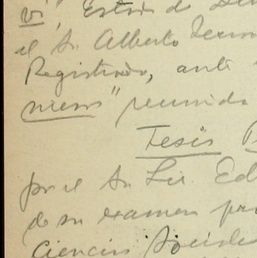 V", Estado de
el Sr. Alberto
Registrado, ante
nieros" reunida
Tesis
por el Sr. Lic. Ed
de su examen pro
Ciencias Sociales